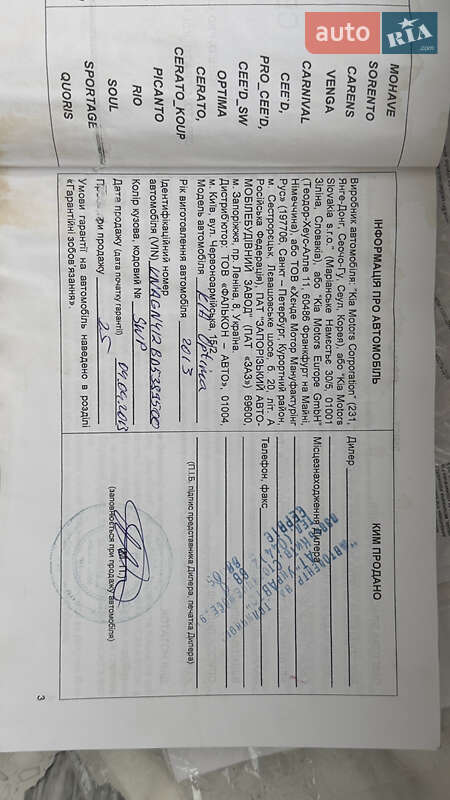 auto RIA
.com
MOHAVE
SORENTO
CARENS
VENGA
CARNIVAL
CEE'D,
PRO_CEE'D,
CEE'D_SW
OPTIMA
CERATO,
CERATO_KOUP
PICANTO
RIO
SOUL
SPORTAGE
QUORIS
ІНФОРМАЦІЯ ПРО АВТОМОБІЛЬ
Виробник автомобіля: "Kia Motors Corporation" (231,
Янге-Донг, Сеочо-Гу, Сеул, Корея), або "Kia Motors
Slovakia s.r.o." (Маріанське Наместье 30/5, 01001
Зіліна, Словакія), або "Kia Motors Europe GmbH"
(Теодор-Хеус-Алле 11, 60486 Франкфурт на Майні,
Німеччина), або "Хенде Мотор Мануфактурінг
Рус» (197706, Санкт - Петербург, Курортний район,
м. Сестрорецьк, Левашовське шосе, б. 20 літ. А
Російська Федерація), ПАТ "ЗАПОРІЗЬКИЙ АВТО-
МОБІЛЕБУДІВНИЙ ЗАВОД" (ПАТ «ЗАЗ») 69600,
м. Запоріжжя, пр. Леніна, 8, Україна.
Дистриб'ютор: ТОВ «ФАЛЬКОН – АВТО», 01004,
м. Київ, вул. Червоноармійська, 15/2
Модель автомобіля KIA Optima
Рік виготовлення автомобіля 2013
Ідентифікаційний номер
автомобіля (VIN)
Колір кузова, кодовий № SWP
Дата продажу (дата початку гарантії) 04.09.2013
при продажу 25
Умови гарантії на автомобіль наведено в розділі
«Гарантійні зобов'язання».
КИМ ПРОДАНО
Дилер
Місцезнаходження Дилера
Телефон, факс
(П.І.Б. підпис представника Дилера, печатка Дилера)
(М.П.)
(заповнюється при продажу автомобіля)
3